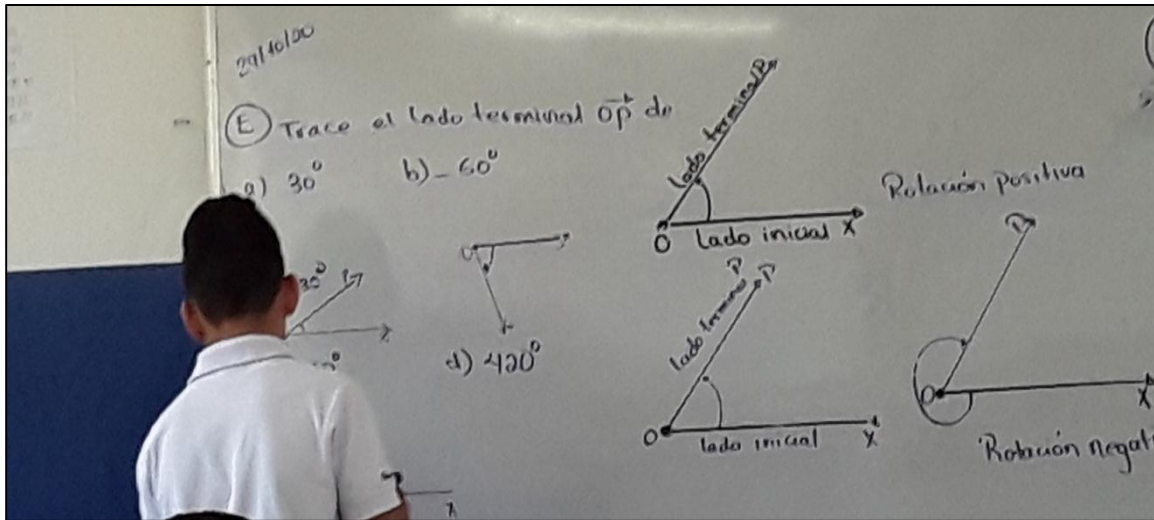 29/10/20
E Trace el lado terminal OP de
a) 30° b) -60°
30° P
O
d) 420°
x
lado terminal P
O lado inicial X
P
lado termina P
O lado inicial X
Rotación positiva
P
O X
Rotación negat